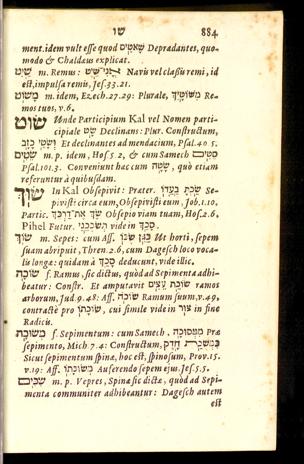 שו 884
ment. idem vult esse quod שֹׁאטִים Depradantes, quo-
modo & Chaldæus explicat.
שַׁיִט m. Remus: אֳנִי־שַׁיִט Navis vel classis remi, id
est, impulsa remis, Jes. 33. 21.
מָשׁוֹט m. idem, Ezech. 27. 29: Plurale, מִשּׁוֹטַיִךְ Re-
mos tuos, v. 6.
שׂוּט Unde Participium Kal vel Nomen parti-
cipiale שָׂט Declinans: Plur. Constructum,
וְשָׂטֵי כָזָב Et declinantes ad mendacium, Psal. 40 5.
שֵׂטִים m. p. idem, Hos. 5 2, & cum Samech סֵטִים
Psal. 101. 3. Conveniunt hæc cum שָׂטָה, quò etiam
referuntur à quibusdam.
שׂוּךְ In Kal Obsepivit: Præter. שַׂכְתָּ בַעֲדוֹ Se-
pivisti circa eum, Obsepivisti eum, Job. 1. 10.
Partic. שָׂךְ אֶת־דַּרְכֵּךְ Obsepio viam tuam, Hos. 2. 6.
Pihel Futur. תְּשֹׂכְכֵנִי vide in סָכַךְ.
שׂךְ m. Sepes: cum Aff. כַּגַּן שֻׂכּוֹ Ut horti, sepem
suam abripuit, Thren. 2. 6, cum Dagesch loco voca-
lis longæ: quidam à סָכַךְ deducunt, vide illic.
שׂוֹכָה f. Ramus, sic dictus, quòd ad Sepimenta adhi-
beatur: Constr. Et amputavit שׂוֹכַת עֵצִים ramos
arborum, Jud. 9. 48: Aff. שׂוֹכֹה Ramum suum, v. 49,
contractè pro שׂוֹכָתוֹ, cui simile vide in צור in fine
Radicis.
מְשׂוּכָה f. Sepimentum: cum Samech, מִמְּסוּכָה Præ
sepimento, Mich. 7. 4: Constructum, כִּמְשֻׂכַת חָדֶק
Sicut sepimentum spinæ, hoc est, spinosum, Prov. 15.
v. 19: Aff. מְשׂוּכָּתוֹ Auferendo sepem ejus, Jes. 5. 5.
שִׂכִּים m. p. Vepres, Spinæ sic dictæ, quòd ad Sepi-
menta communiter adhibeantur: Dagesch autem
est